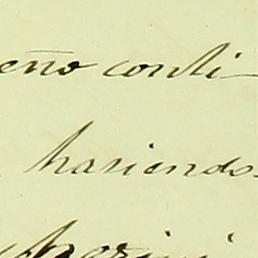 eño conti-
hasiendo-